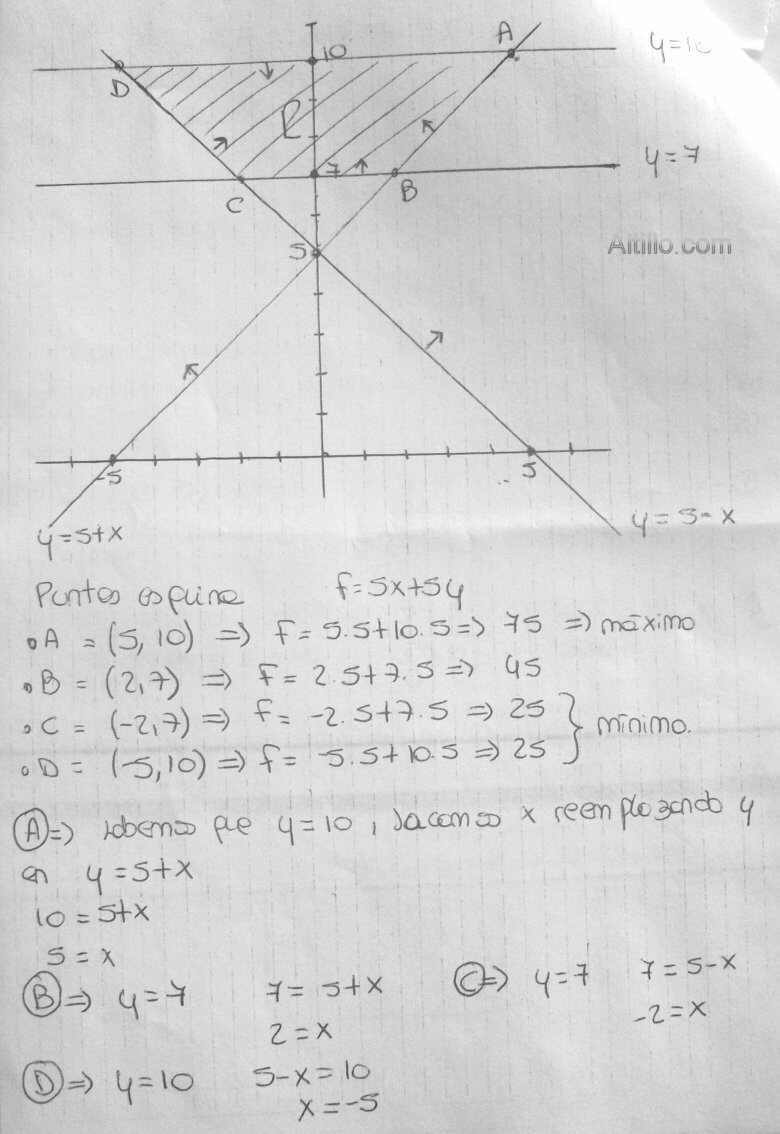 A
10
y=10
D
P
7
y=7
C
B
5
Altillo.com
-5
5
y=5+x
y=5-x
Puntos esquina f=5x+5y
• A = (5, 10) => f= 5.5+10.5=> 75 => máximo
• B = (2,7) => f= 2.5+7.5 => 45
• C = (-2,7) => f= -2.5+7.5 => 25
• D = (-5,10) => f= -5.5+10.5 => 25 } mínimo.
(A)=> sabemos que y=10, sacamos x reemplazando y
en y=5+x
10=5+x
5=x
(B)=> y=7 7=5+x (C)=> y=7 7=5-x
2=x -2=x
(D)=> y=10 5-x=10
x=-5